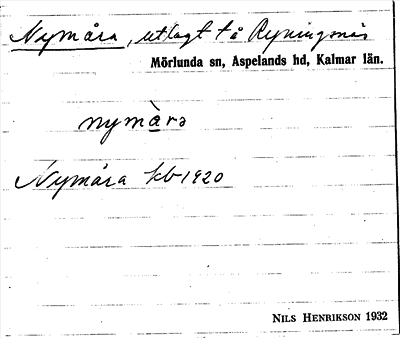 Nymåra, utlagt t å Ryningsnäs
Mörlunda sn, Aspelands hd, Kalmar län.
nymåra
Nymåra kb 1920
NILS HENRIKSON 1932